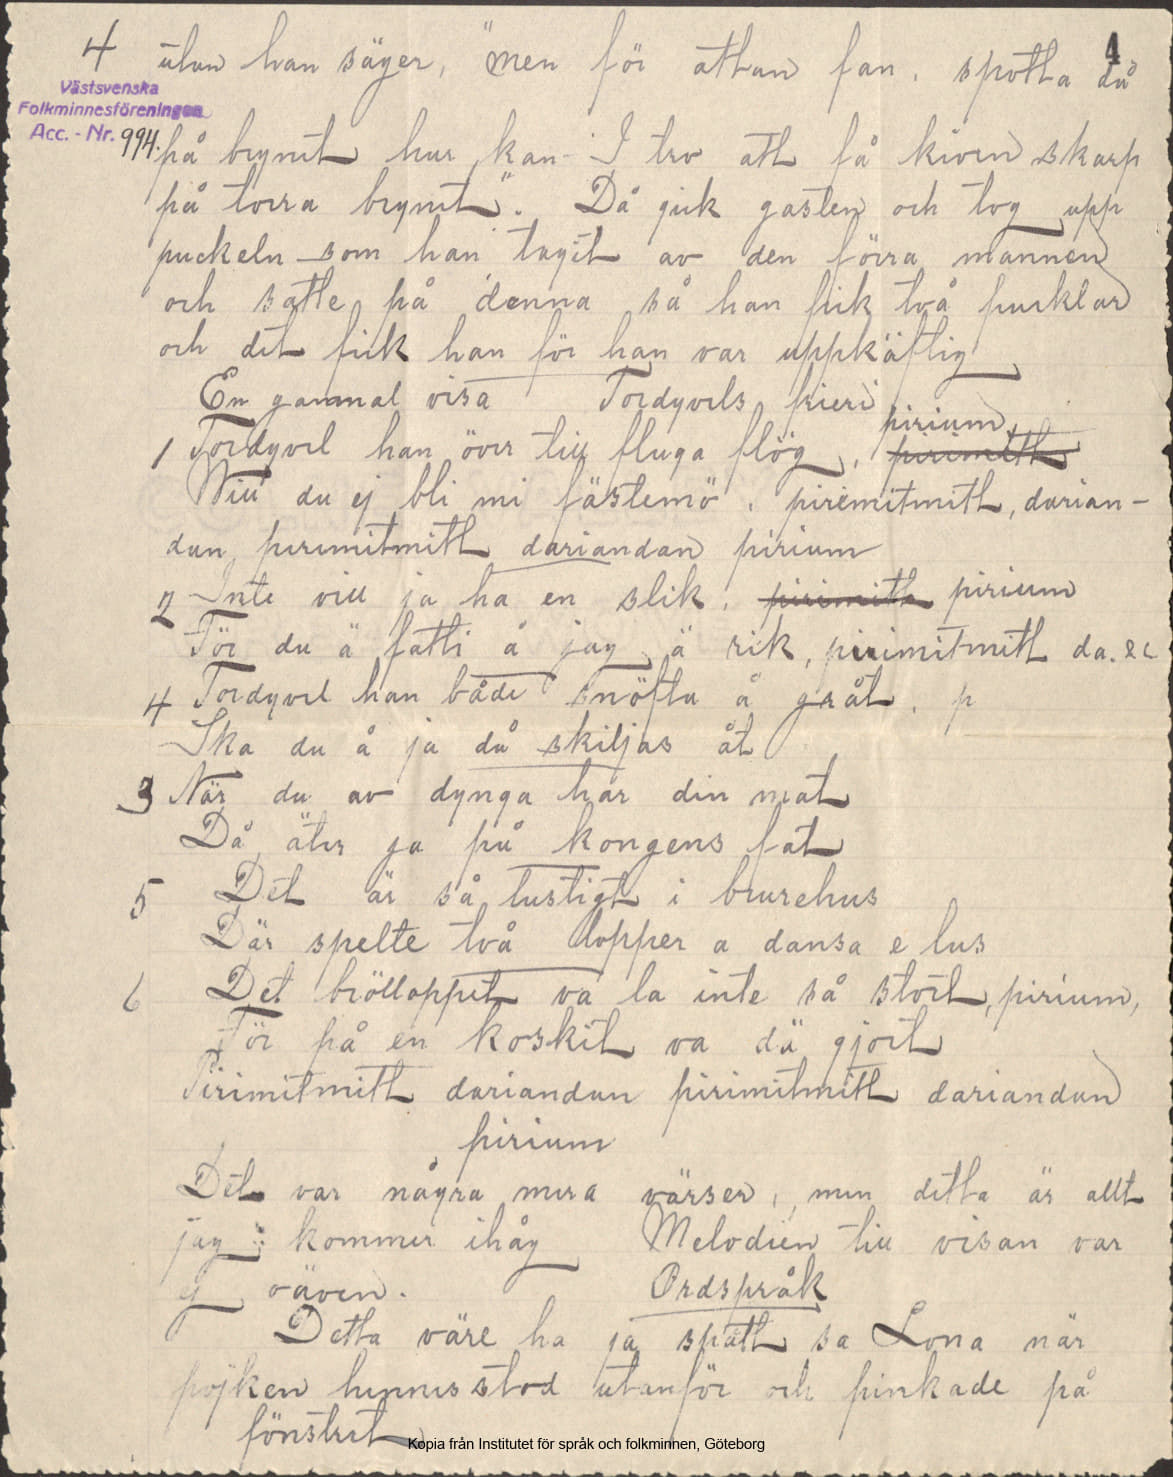 4 utan han säger, "men för attan fan, spotta då 4
Västsvenska
Folkminnesföreningen
Acc. - Nr. 994.
på brynet hur kan I tro att få kiven skarp
på torra brynet". Då gick gasten och tog upp
puckeln som han tagit av den förra mannen
och satte på denna så han fick två pucklar
och det fick han för han var uppkäftig
En gammal visa Tordyvels frieri
pirium,
1 Tordyvel han över till fluga flög, pirimitt
Will du ej bli mi fästemö, pirimitmitt, darian-
dan, pirimitmitt dariandan pirium
2 Inte vill ja ha en slik, pirimitt pirium
För du ä fatti å jag ä rik, pirimitmitt da. ec
4 Tordyvel han både snöfta å gråt, p
Ska du å ja då skiljas åt
3 När du av dynga har din mat
Då äter ja på kongens fat
5 Det är så lustigt i brurehus
Där spelte två lopper a dansa e lus
6 Det brölloppet va la inte så stort, pirium,
För på en koskit va dä gjort
Pirimitmitt dariandan pirimitmitt dariandan
pirium
Det var några mera värser, men detta är allt
jag kommer ihåg Melodien till visan var
ej räven.
Ordspråk
Detta väre ha ja spått sa Lona när
pojken hennes stod utanför och pinkade på
fönstret
Kopia från Institutet för språk och folkminnen, Göteborg